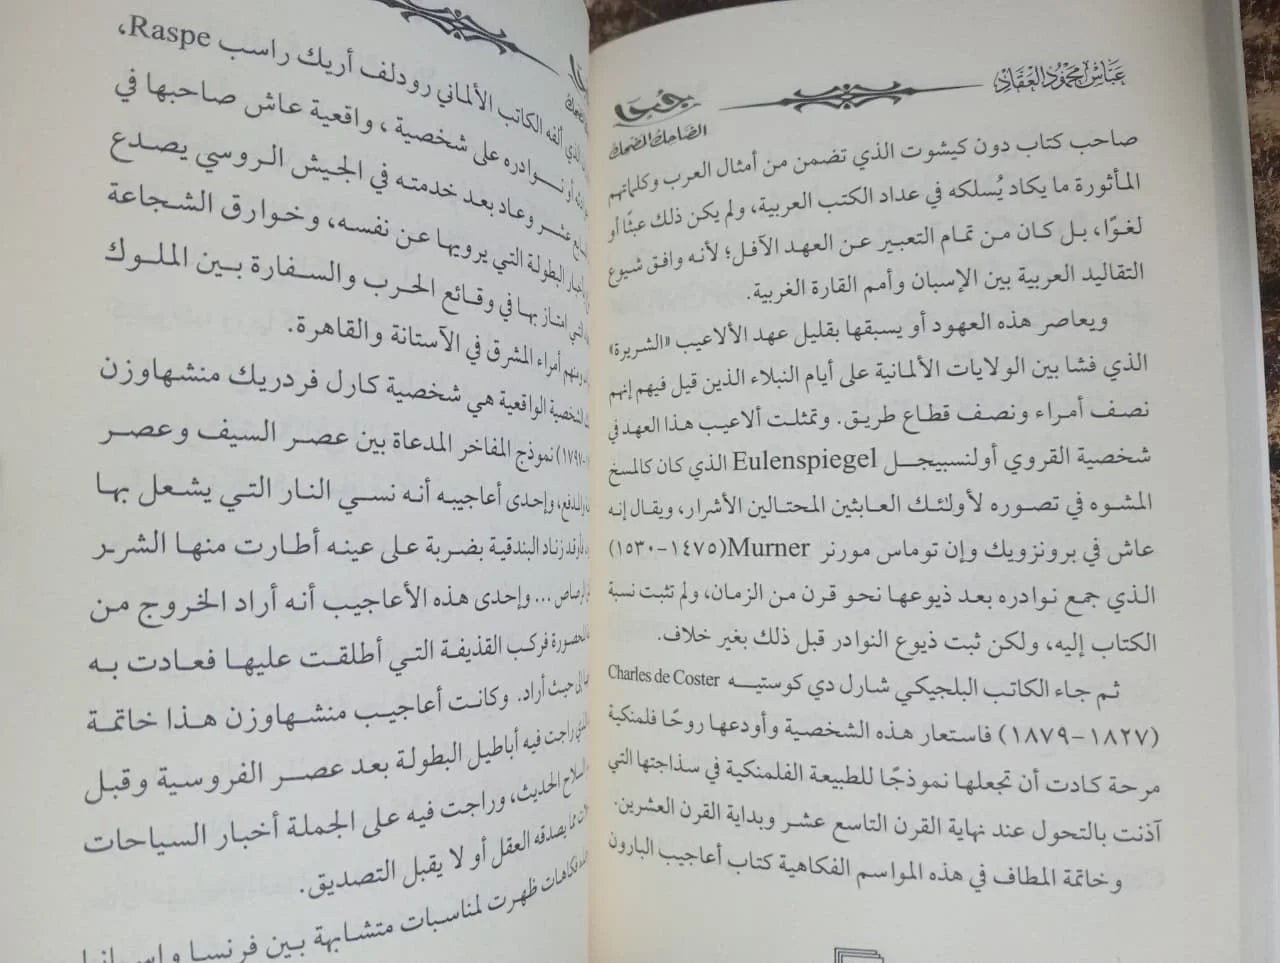 عباس محمود العقاد
جحا
الضاحك المضحك
صاحب كتاب دون كيشوت الذي تضمن من أمثال العرب وكلماتهم
المأثورة ما يكاد يُسلكه في عداد الكتب العربية، ولم يكن ذلك عبثًا أو
لغوًا، بل كان من تمام التعبير عن العهد الآفل؛ لأنه وافق شيوع
التقاليد العربية بين الإسبان وأمم القارة الغربية.
ويعاصر هذه العهود أو يسبقها بقليل عهد الألاعيب «الشريرة»
الذي فشا بين الولايات الألمانية على أيام النبلاء الذين قيل فيهم إنهم
نصف أمراء ونصف قطاع طريق. وتمثلت ألاعيب هذا العهد في
شخصية القروي أولنسبيجل Eulenspiegel الذي كان كالمسخ
المشوه في تصوره لأولئك العابثين المحتالين الأشرار، ويقال إنه
عاش في برونزويك وإن توماس مورنر Murner (١٤٧٥-١٥٣٠)
الذي جمع نوادره بعد ذيوعها نحو قرن من الزمان، ولم تثبت نسبة
الكتاب إليه، ولكن ثبت ذيوع النوادر قبل ذلك بغير خلاف.
ثم جاء الكاتب البلجيكي شارل دي كوستيه Charles de Coster
(١٨٢٧-١٨٧٩) فاستعار هذه الشخصية وأودعها روحًا فلمنكية
مرحة كادت أن تجعلها نموذجًا للطبيعة الفلمنكية في سذاجتها التي
آذنت بالتحول عند نهاية القرن التاسع عشر وبداية القرن العشرين.
وخاتمة المطاف في هذه المواسم الفكاهية كتاب أعاجيب البارون
الذي ألفه الكاتب الألماني رودلف أريك راسب Raspe،
أو نوادره على شخصية، واقعية عاش صاحبها في
عشر وعاد بعد خدمته في الجيش الروسي يصدع
بأخبار البطولة التي يرويها عن نفسه، وخوارق الشجاعة
التي امتاز بها في وقائع الحرب والسفارة بين الملوك
ومنهم أمراء المشرق في الآستانة والقاهرة.
الشخصية الواقعية هي شخصية كارل فردريك منشهاوزن
١٧٩٧) نموذج المفاخر المدعاة بين عصر السيف وعصر
والمدفع، وإحدى أعاجيبه أنه نسي النار التي يشعل بها
زناد البندقية بضربة على عينه أطارت منها الشرر
الرصاص ... وإحدى هذه الأعاجيب أنه أراد الخروج من
المحصورة فركب القذيفة التي أطلقت عليها فعادت به
إلى حيث أراد. وكانت أعاجيب منشهاوزن هذا خاتمة
راجت فيه أباطيل البطولة بعد عصر الفروسية وقبل
السلاح الحديث، وراجت فيه على الجملة أخبار السياحات
مما يصدقه العقل أو لا يقبل التصديق.
فكاهات ظهرت لمناسبات متشابهة بين فرنسا وإسبانيا